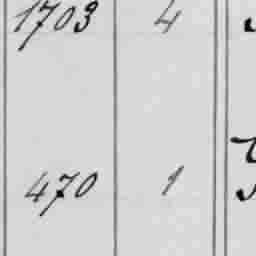 1703 4
470 1